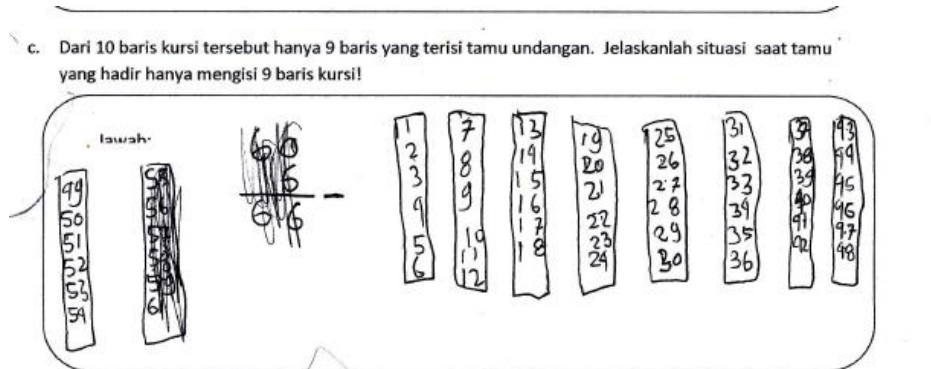 c. Dari 10 baris kursi tersebut hanya 9 baris yang terisi tamu undangan. Jelaskanlah situasi saat tamu
yang hadir hanya mengisi 9 baris kursi!
Jawab:
60
6
66
1
2
3
4
5
6
7
8
9
10
11
12
13
14
15
16
17
18
19
20
21
22
23
24
25
26
27
28
29
30
31
32
33
34
35
36
37
38
39
40
41
42
43
44
45
46
47
48
49
50
51
52
53
54